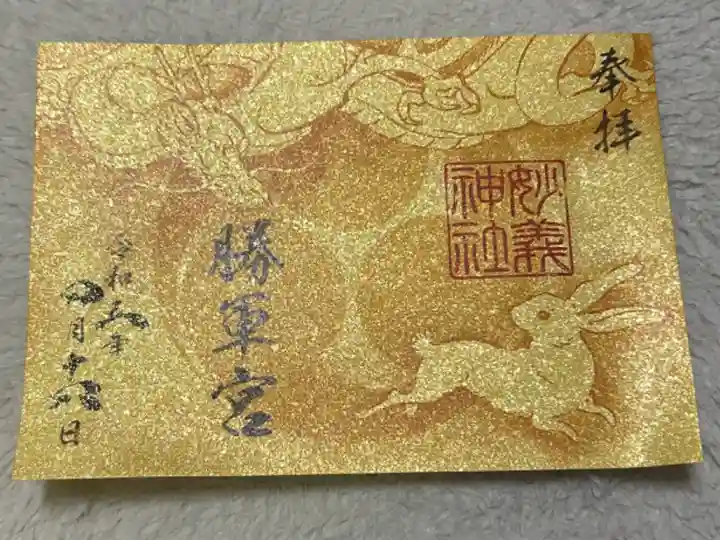 奉拝
妙義
神社
勝軍宮
令和五年
四月十八日